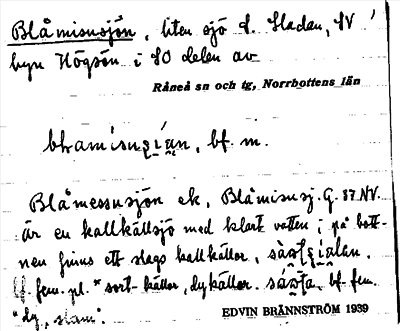 Blåmisusjön, liten sjö f. Sladan, SV
byn Högsön i SO delen av
Råneå sn och tg, Norrbottens län
bf. m.
Blåmessusjön ek, Blåmisusj. G. 37 NV.
är en kallkällsjö med klart vatten; på bott-
nen finns ett slags kallkällor,
bf. fem. pl. "sort-källor, dykällor. bf. fem.
"dy, slam".
EDVIN BRÄNNSTRÖM 1939